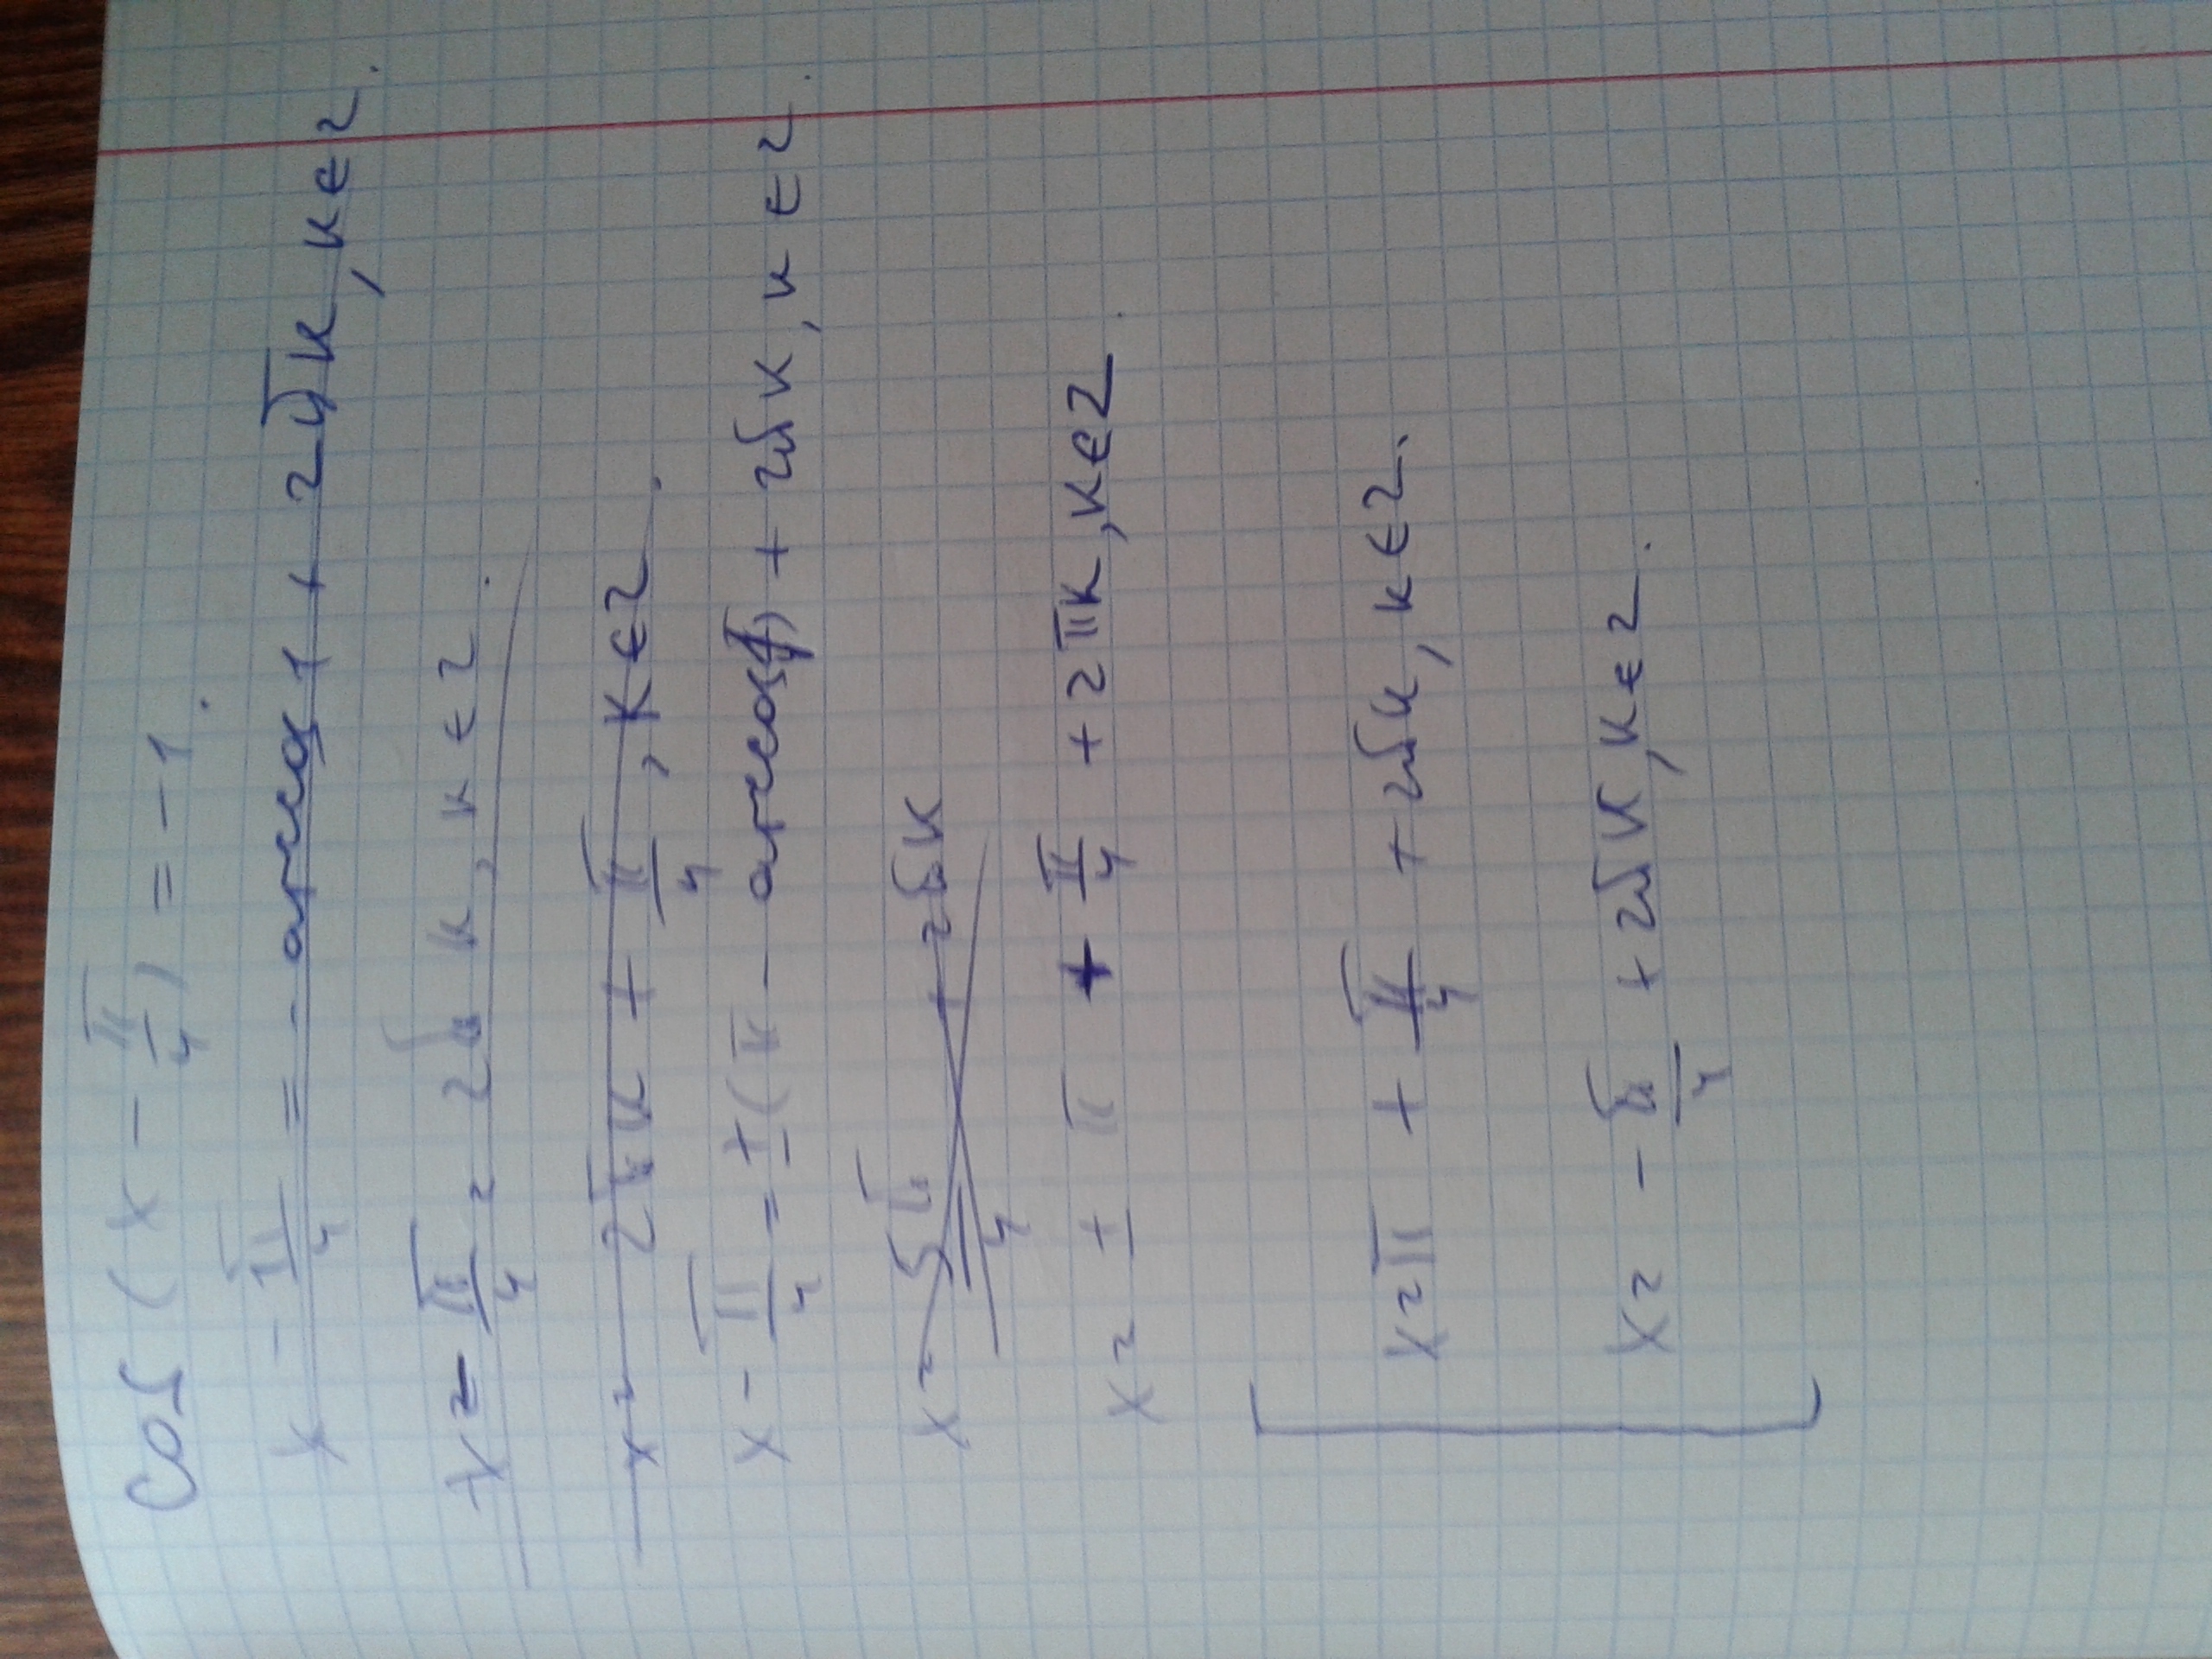 cos (x - π/4) = -1.
x - π/4 = - arccos 1 + 2πk, k ∈ Z.
x - π/4 = 2πk, k ∈ Z.
x = 2πk + π/4, k ∈ Z.
x - π/4 = ±(π - arccos 1) + 2πk, k ∈ Z.
x = 5π/4 + 2πk
x = ± π + π/4 + 2πk, k ∈ Z.
x = π + π/4 + 2πk, k ∈ Z.
x = - π/4 + 2πk, k ∈ Z.